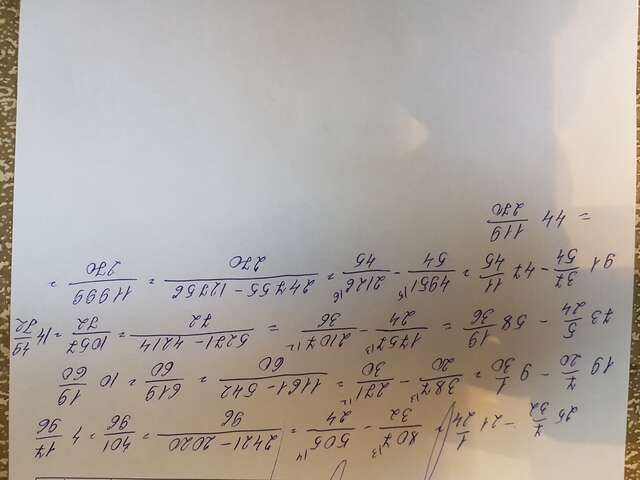 25 7/32 - 21 1/24 = 807\3/32 - 505\4/24 = (2421 - 2020)/96 = 401/96 = 4 17/96
19 7/20 - 9 1/30 = 387\3/20 - 271\2/30 = (1161 - 542)/60 = 619/60 = 10 19/60
73 5/24 - 58 19/36 = 1757\3/24 - 2107\2/36 = (5271 - 4214)/72 = 1057/72 = 14 49/72
91 37/54 - 47 11/45 = 4951\5/54 - 2126\6/45 = (24755 - 12756)/270 = 11999/270 =
= 44 119/270